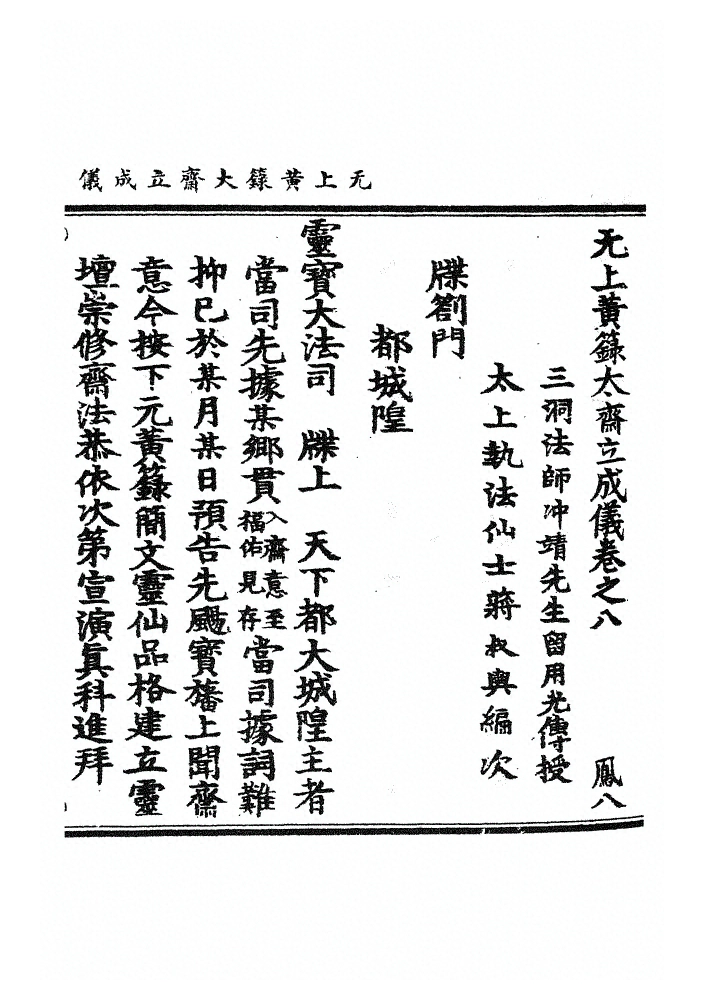 无上黃籙大齋立成儀
无上黃籙大齋立成儀卷之八　鳳八
三洞法師冲靖先生留用光傳授
太上執法仙士蔣叔輿編次
牒劄門
都城隍
靈寶大法司　牒上　天下都大城隍主者
當司先據某鄉貫入齋意至福佑見存當司據詞難
抑已於某月某日預告先颺寶旛上聞齋
意今按下元黃籙簡文靈仙品格建立靈
壇崇修齋法恭依次第宣演眞科進拜